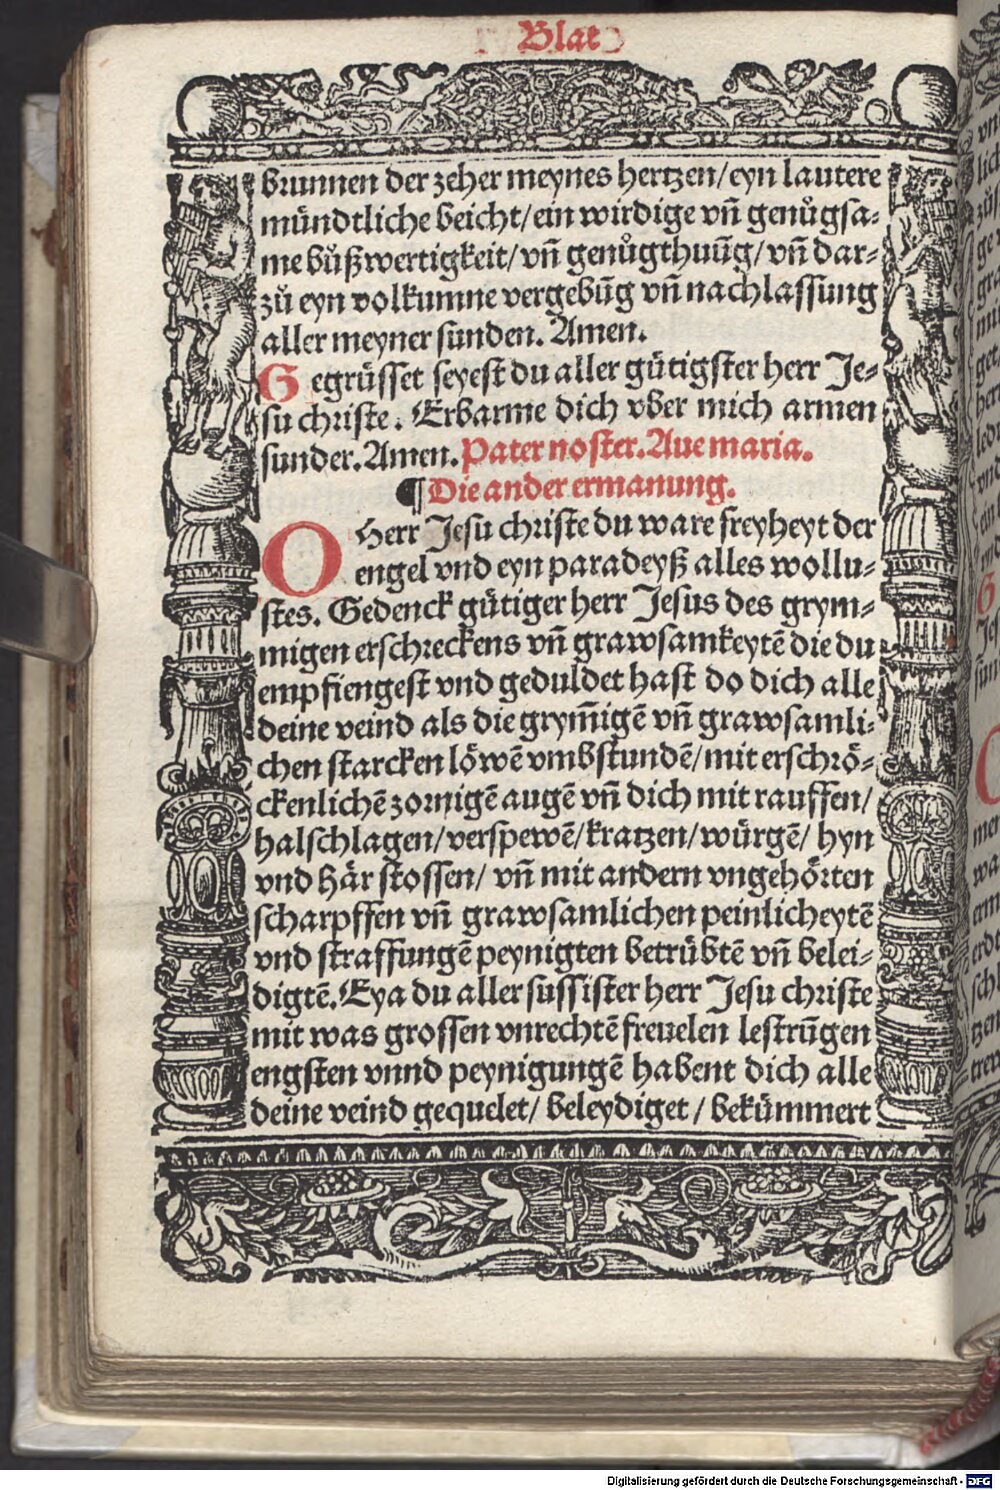 Blat
brunnen der zeher meynes hertzen/eyn lautere
mündtliche beicht/ein wirdige vn̄ genůgsa⸗
me bůßwertigkeit/vn̄ genůgthuūg/vn̄ dar⸗
zů eyn volkumne vergebūg vn̄ nachlassung
aller meyner sunden. Amen.
Gegrüsset seyest du aller gütigster herr Je⸗
su christe. Erbarme dich vber mich armen
sunder. Amen. Pater noster. Aue maria.
¶ Die ander ermanung.
O Herr Jesu christe du ware freyheyt der
engel vnd eyn paradeyß alles wollu⸗
stes. Gedenck gütiger herr Jesus des grym⸗
migen erschreckens vn̄ grawsamkeytē die du
empfiengest vnd geduldet hast do dich alle
deine veind als die grym̄igē vn̄ grawsamli⸗
chen starcken löwē vmbstundē/mit erschrö⸗
ckenlichē zornigē augē vn̄ dich mit rauffen/
halschlagen/verspewē/kratzen/würgē/ hyn
vnd här stossen/ vn̄ mit andern vngehörten
scharpffen vn̄ grawsamlichen peinlicheytē
vnd straffungē peynigten betrübtē vn̄ belei⸗
digtē. Eya du aller sussister herr Jesu christe
mit was grossen vnrechtē freuelen lestrūgen
engsten vnnd peynigungē habent dich alle
deine veind gequelet/ beleydiget / bekümmert
Digitalisierung gefördert durch die Deutsche Forschungsgemeinschaft - DFG